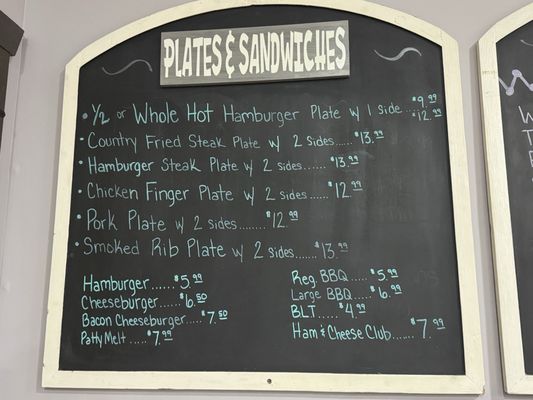 PLATES & SANDWICHES
• ½ or Whole Hot Hamburger Plate w/ 1 side .... $9.99 $12.99
• Country Fried Steak Plate w/ 2 Sides...... $13.99
• Hamburger Steak Plate w/ 2 sides...... $13.99
• Chicken Finger Plate w/ 2 sides....... $12.99
• Pork Plate w/ 2 sides........ $12.99
• Smoked Rib Plate w/ 2 sides....... $13.99
Hamburger...... $5.99
Cheeseburger...... $6.50
Bacon Cheeseburger..... $7.50
Patty Melt ..... $7.99
Reg. BBQ ..... $5.99
Large BBQ ..... $6.99
BLT..... $4.99
Ham & Cheese Club....... $7.99